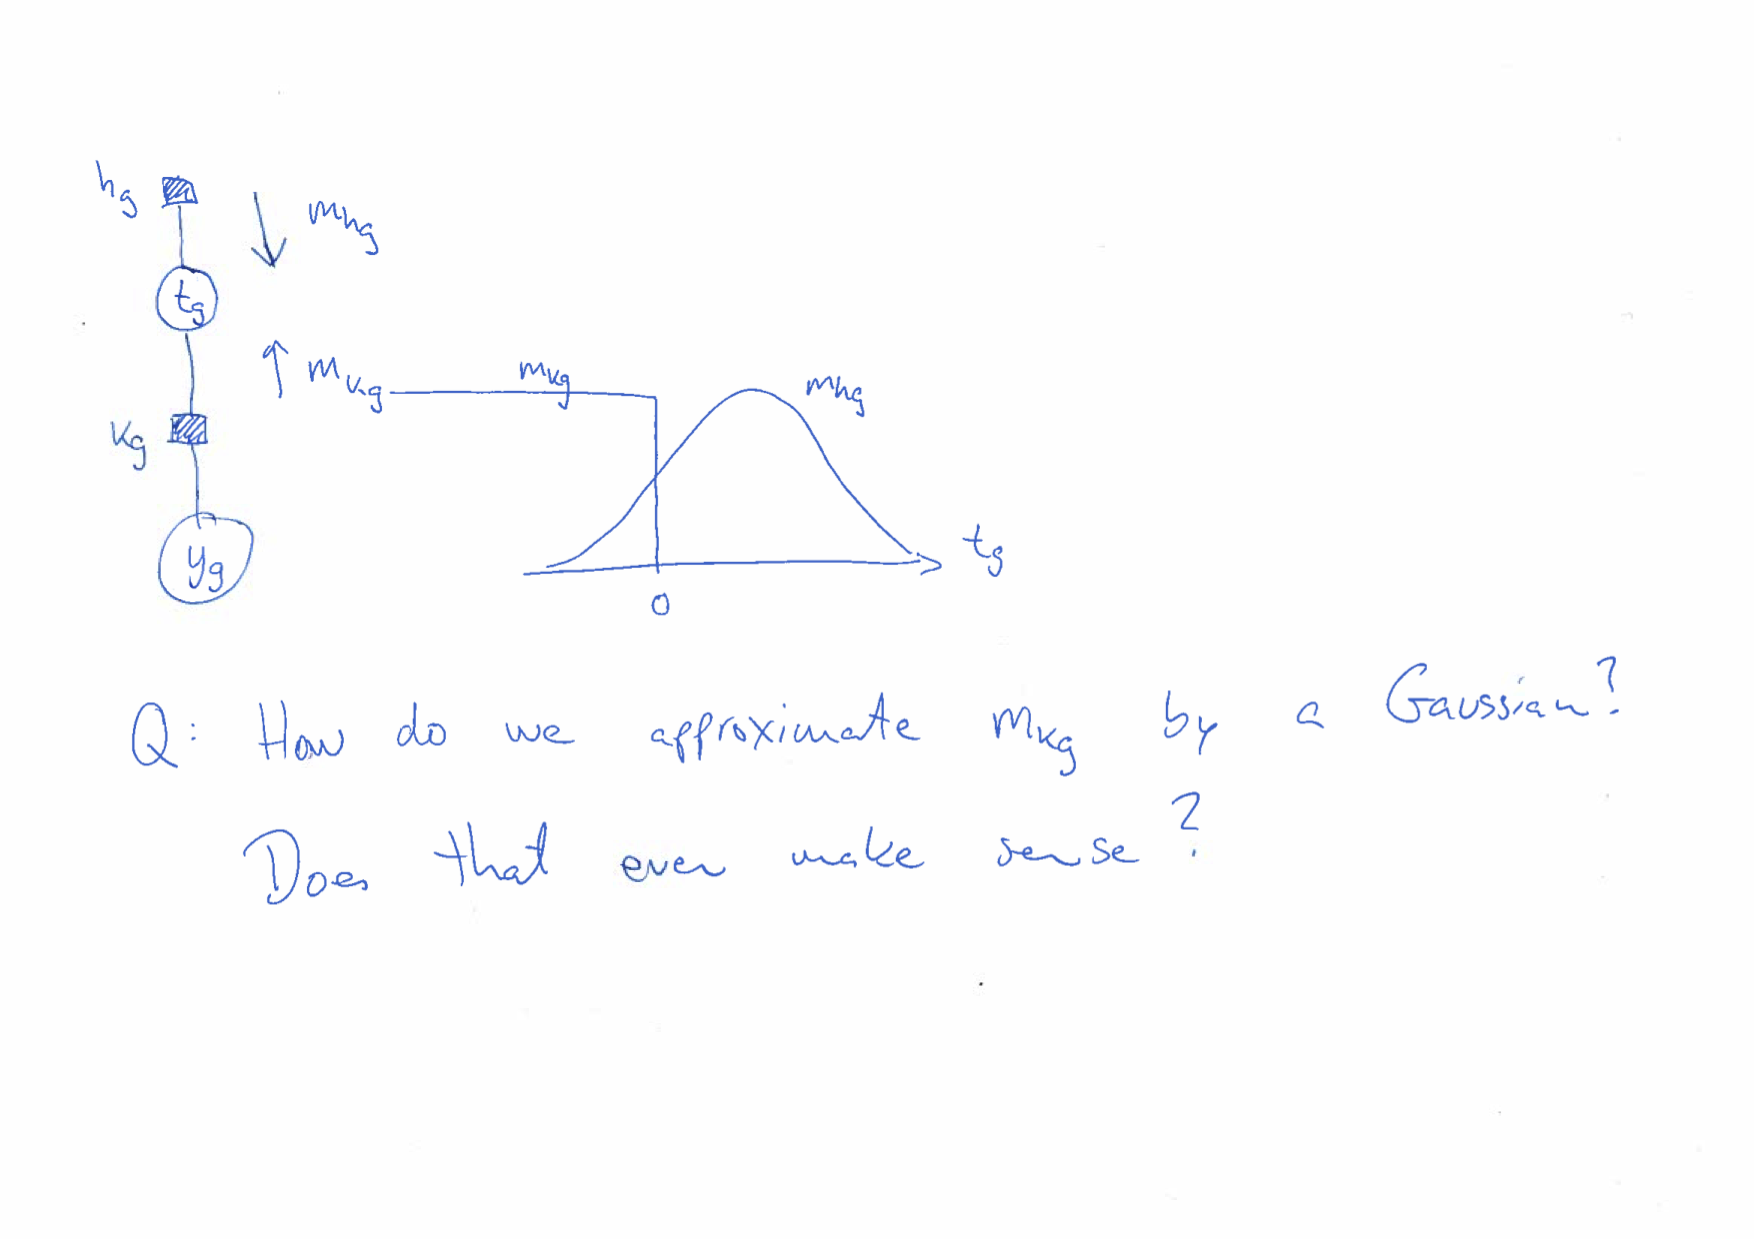 hg
mhg
tg
mkg
mkg
mhg
kg
tg
yg
0
Q: How do we approximate mkg by a Gaussian?
Does that ever make sense?